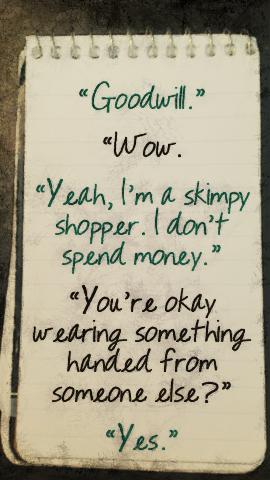 “Goodwill.”
“Wow.
“Yeah, I'm a skimpy
shopper. I don't
spend money.”
“You're okay
wearing something
handed from
someone else?”
“Yes.”